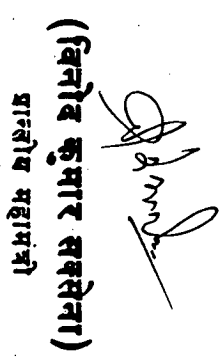 (विनोद कुमार सक्सेना)
प्रान्तीय महामंत्री